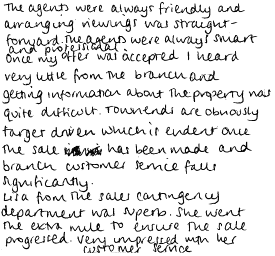 The agents were always friendly and
arranging viewings was straight-
forward. The agents were always smart
and professional.
Once my offer was accepted I heard
very little from the branch and
getting information about the property was
quite difficult. Townends are obviously
target driven which is evident once
the sale has been made and
branch customer service falls
significantly.
Lisa from the sales contingency
department was superb. She went
the extra mile to ensure the sale
progressed. Very impressed with her
customer service